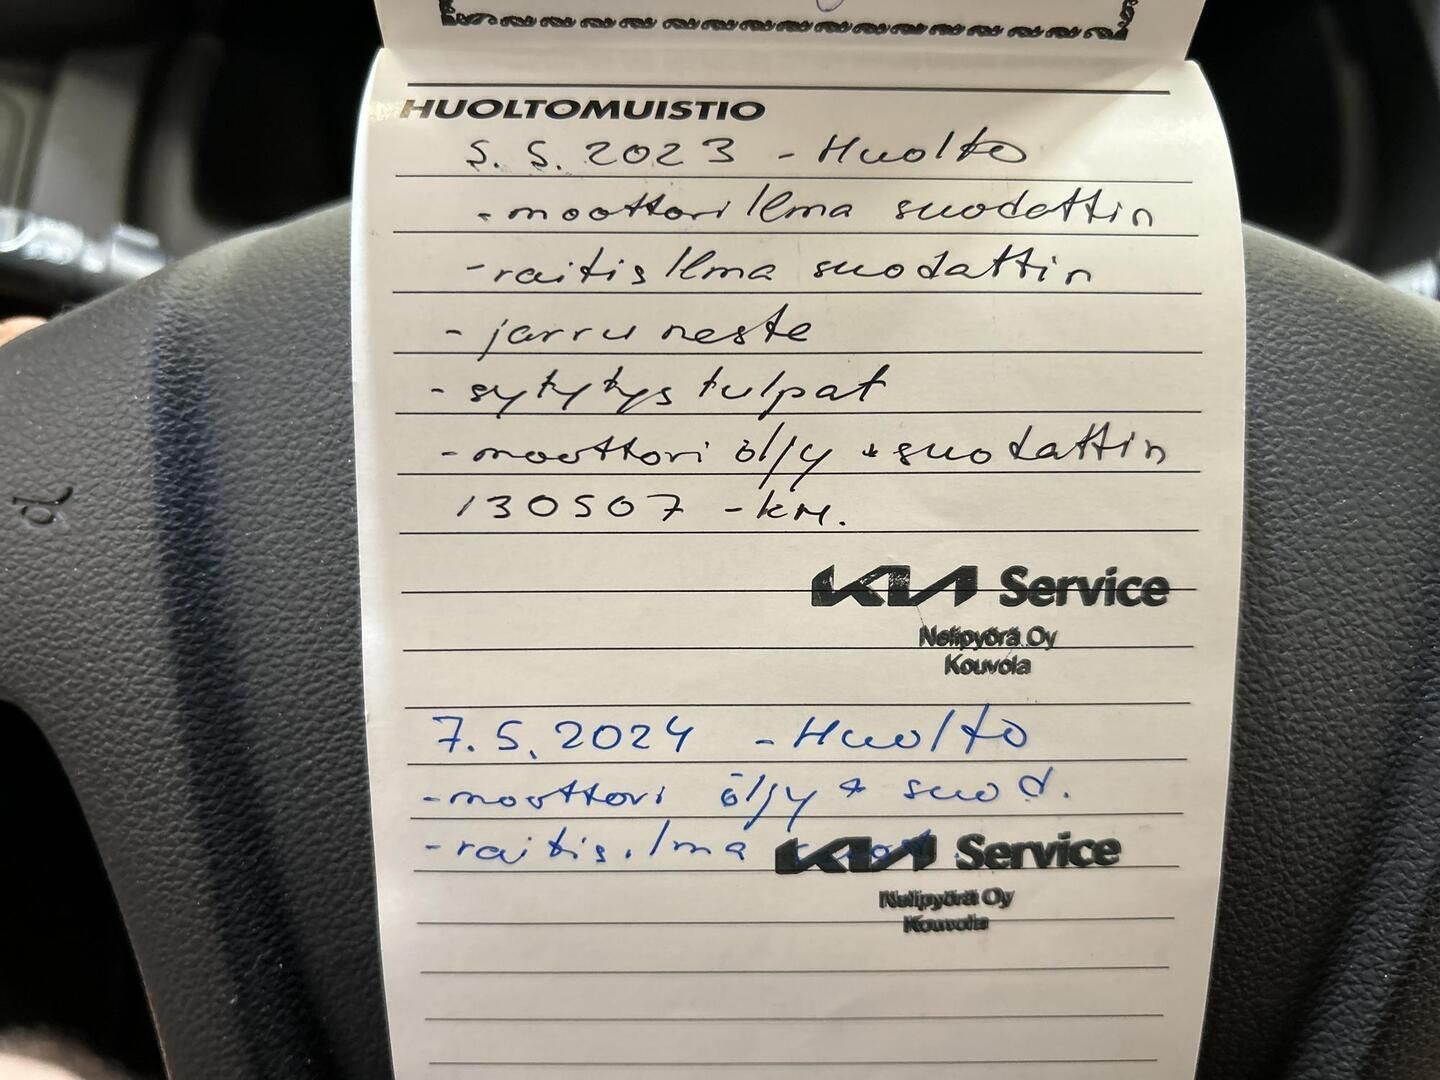 HUOLTOMUISTIO
5.5.2023 - Huolto
- moottori Ilma suodattin
- raitis Ilma suodattin
- jarru neste
- sytytys tulpat
- moottori öljy + suodattin
130507 - km.
KIA Service
Nelipyörä Oy
Kouvola
7.5.2024 - Huolto
- moottori öljy + suod.
- raitis. Ilma
KIA Service
Nelipyörä Oy
Kouvola